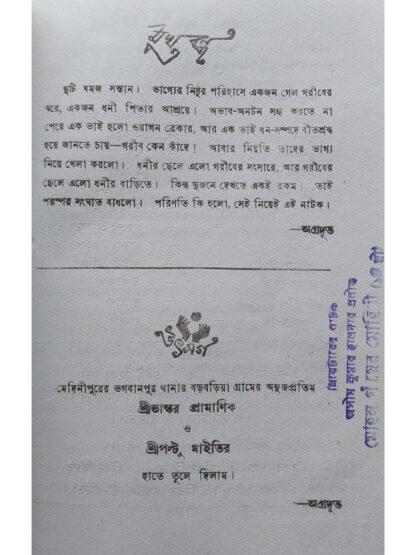 মুখবন্ধ
দুটি যমজ সন্তান। ভাগ্যের নিষ্ঠুর পরিহাসে একজন গেল গরীবের
ঘরে, একজন ধনী পিতার আশ্রয়ে। অভাব-অনটন সহ্য করতে না
পেরে এক ভাই হলো ওয়াগন ব্রেকার, আর এক ভাই ধন-সম্পদে বীতশ্রদ্ধ
হয়ে জানতে চায়—গরীব কেন কাঁদে! আবার নিয়তি তাদের ভাগ্য
নিয়ে খেলা করলো। ধনীর ছেলে এলো গরীবের সংসারে, আর গরীবের
ছেলে এলো ধনীর বাড়িতে। কিন্তু দুজনে দেখতে একই রকম। তাই
পরস্পর সংঘাত বাধলো। পরিণতি কি হলো, সেই নিয়েই এই নাটক।
—অগ্রদূত
উৎসর্গ
মেদিনীপুরের ভগবানপুর থানার বড়বড়িয়া গ্রামের অনুজপ্রতিম
শ্রীভাস্কর প্রামাণিক
ও
শ্রীপল্টু মাইতির
হাতে তুলে দিলাম।
—অগ্রদূত
থিয়েটারের নাটক
অসীম কুমার হালদার প্রণীত